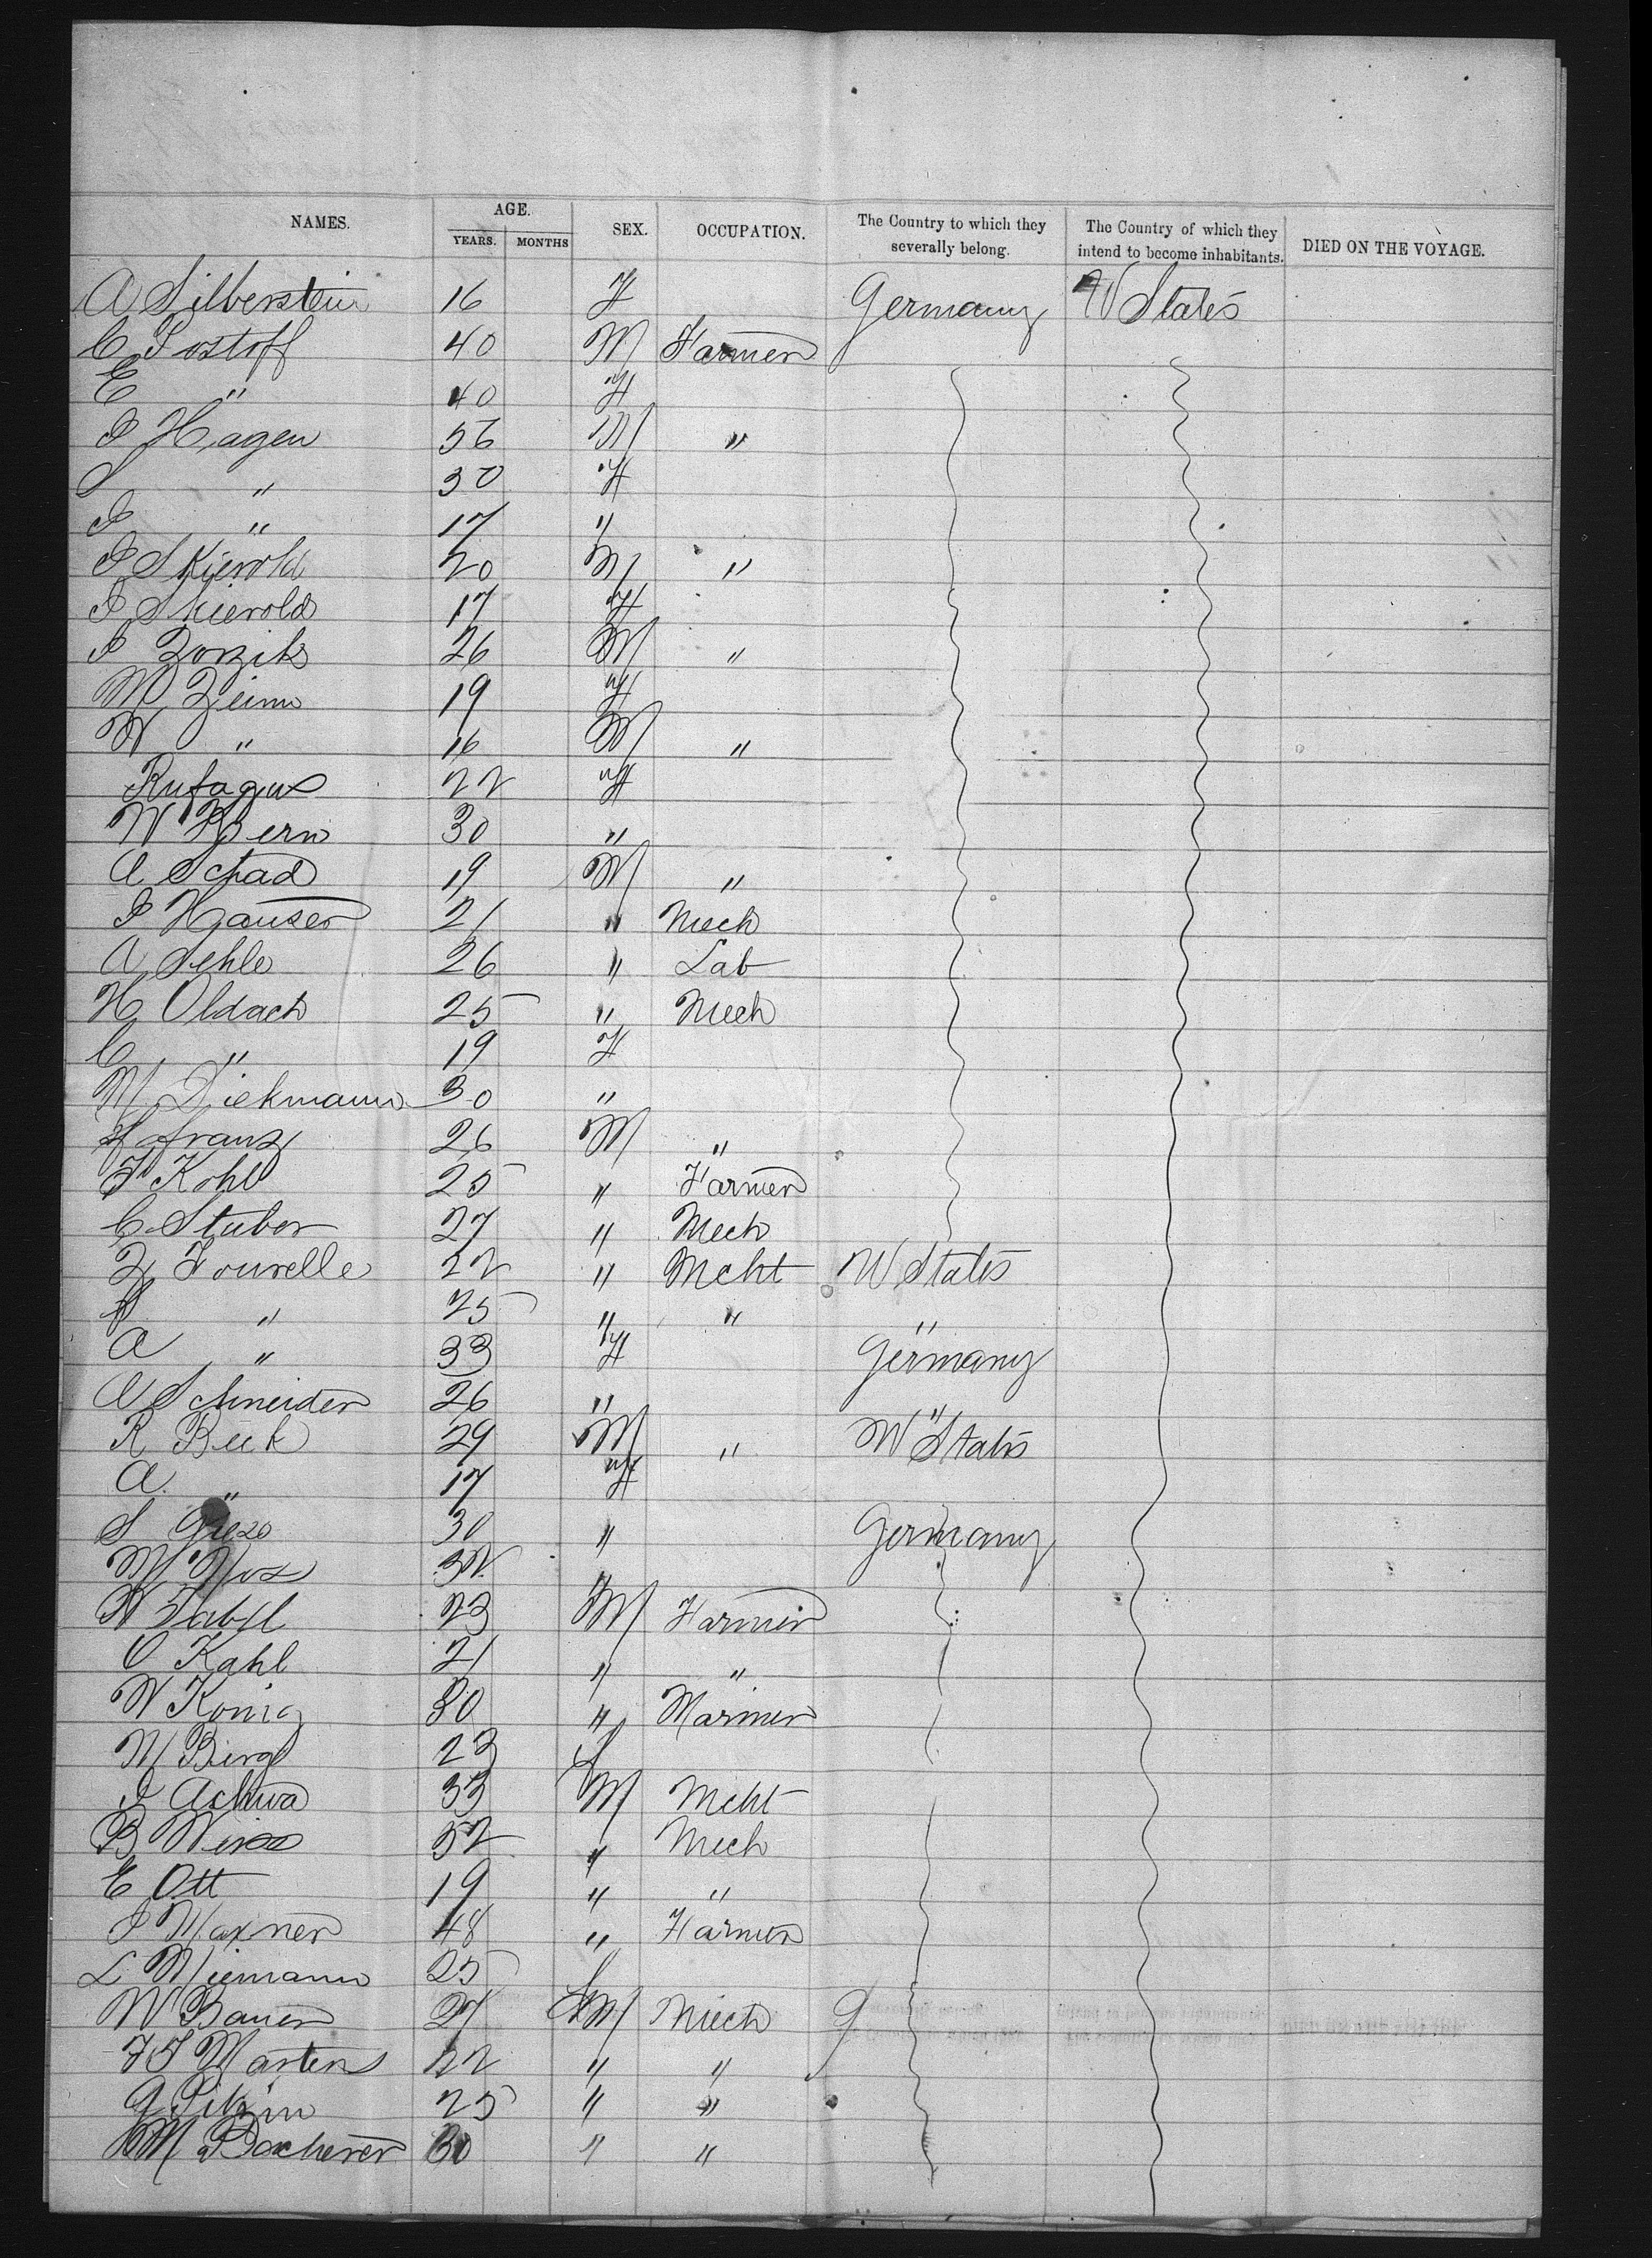 NAMES. AGE. SEX. OCCUPATION. The Country to which they severally belong. The Country of which they intend to become inhabitants. DIED ON THE VOYAGE.
YEARS. MONTHS
A Silberstein 16 F Germany U States
C Postoff 40 M Farmer
E " 40 F
P Hagen 56 M "
S " 30 F
P " 17 "
P Skierold 20 M "
P Skierold 17 F
P Zorzik 26 M "
M Zeim 19 F
W " 16 M "
Rufagus 22 F
W Bern 30 "
A Schad 19 M "
P Hauser 21 " Mech
A Sehle 26 " Lab
H Oldach 25 " Mech
C " 19 F
M Diekmann 30 "
H Franz 26 M "
F Kohl 25 " Farmer
C Stuber 27 " Mech
Z Fourelle 22 " Mcht U States
" 25 " " "
A " 33 F Germany
A Schneider 26 " "
R Beek 29 M " U States
A " 17 F
S 30 " Germany
M Nos "
23 M Farmer
O Kahl 21 " "
W Konig 30 " Mariner
M Birgl 23
P Achwa 33 M Mcht
B Weiss 52 " Mech
E Ott 19 " "
P Maxner 48 " Farmer
L Niemann 25
W Bauer 27 M Mech G
F F Martens 22 " "
G 25 " "
M Bacherer 30 " "